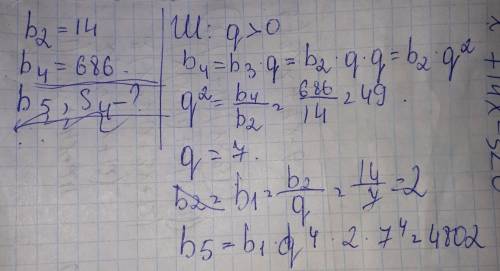 b₂ = 14
b₄ = 686.
b₅, S₄ - ?
Ш: q > 0
b₄ = b₃ · q = b₂ · q · q = b₂ · q²
q² = b₄/b₂ = 686/14 = 49.
q = 7.
b₂ = b₁ = b₂/q = 14/7 = 2
b₅ = b₁ · q⁴ · 2 · 7⁴ = 4802